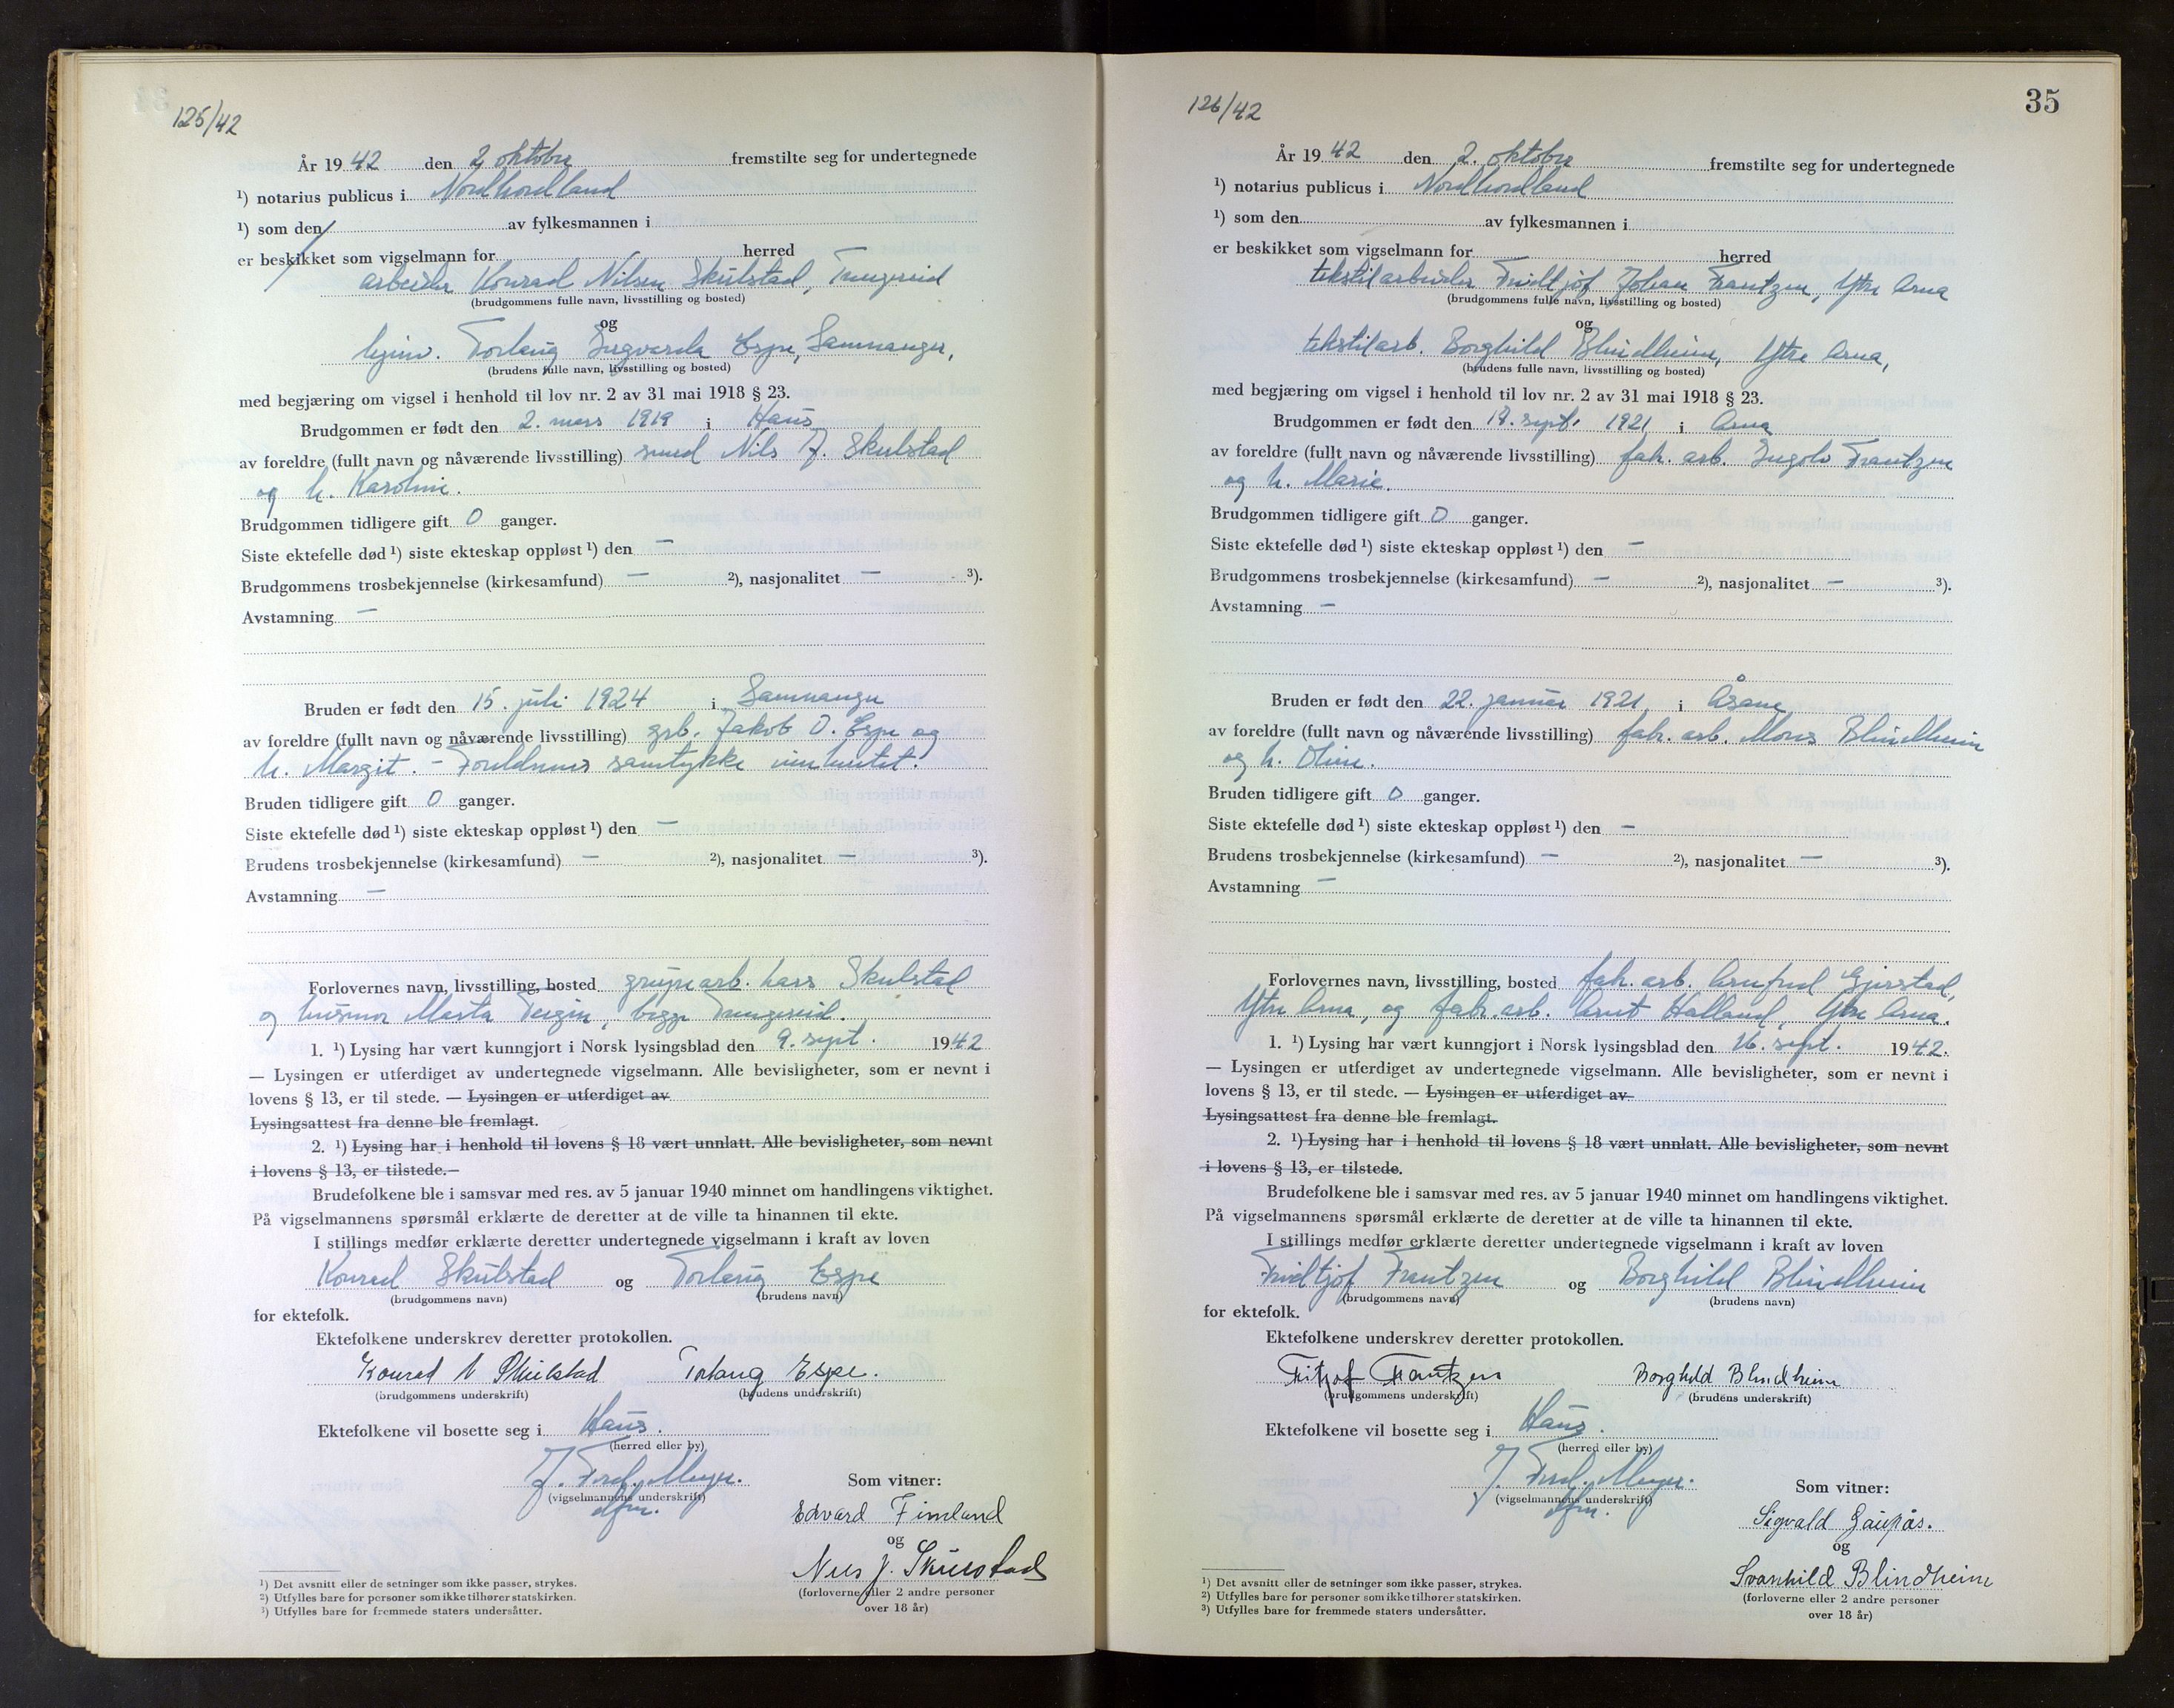 125/42
År 19 42 den 2. oktober fremstilte seg for undertegnede
¹) notarius publicus i Nordhordland
¹) som den av fylkesmannen i
er beskikket som vigselmann for herred
arbeider Konrad Nilsen Skulstad, Trengereid
(brudgommens fulle navn, livsstilling og bosted)
og
hjemv. Torlaug Ingvarda Espe, Samnanger,
(brudens fulle navn, livsstilling og bosted)
med begjæring om vigsel i henhold til lov nr. 2 av 31 mai 1918 § 23.
Brudgommen er født den 2. mars 1919 i Haus
av foreldre (fullt navn og nåværende livsstilling) smed Nils J. Skulstad
og h. Karoline.
Brudgommen tidligere gift 0 ganger.
Siste ektefelle død ¹) siste ekteskap oppløst ¹) den —
Brudgommens trosbekjennelse (kirkesamfund) — ²), nasjonalitet — ³).
Avstamning —
Bruden er født den 15. juli 1924 i Samnanger
av foreldre (fullt navn og nåværende livsstilling) grb. Jakob O. Espe og
h. Margit. – Foreldrenes samtykke innhentet.
Bruden tidligere gift 0 ganger.
Siste ektefelle død ¹) siste ekteskap oppløst ¹) den —
Brudens trosbekjennelse (kirkesamfund) — ²), nasjonalitet — ³).
Avstamning —
Forlovernes navn, livsstilling, bosted grupearb. Lars Skulstad
og husmor Marta Teigen, begge Trengereid.
1. ¹) Lysing har vært kunngjort i Norsk lysingsblad den 9. sept. 1942
— Lysingen er utferdiget av undertegnede vigselmann. Alle bevisligheter, som er nevnt i
lovens § 13, er til stede. — Lysingen er utferdiget av
Lysingsattest fra denne ble fremlagt.
2. ¹) Lysing har i henhold til lovens § 18 vært unnlatt. Alle bevisligheter, som nevnt
i lovens § 13, er tilstede.—
Brudefolkene ble i samsvar med res. av 5 januar 1940 minnet om handlingens viktighet.
På vigselmannens spørsmål erklærte de deretter at de ville ta hinannen til ekte.
I stillings medfør erklærte deretter undertegnede vigselmann i kraft av loven
Konrad Skulstad og Torlaug Espe
(brudgommens navn) (brudens navn)
for ektefolk.
Ektefolkene underskrev deretter protokollen.
Konrad N Skulstad Torlaug Espe.
(brudgommens underskrift) (brudens underskrift)
Ektefolkene vil bosette seg i Haus.
(herred eller by)
J. Fred. Meyer.
(vigselmannens underskrift)
dfm.
Som vitner:
Edvard Fimland
og
Nils J. Skulstad
(forloverne eller 2 andre personer
over 18 år)
¹) Det avsnitt eller de setninger som ikke passer, strykes.
²) Utfylles bare for personer som ikke tilhører statskirken.
³) Utfylles bare for fremmede staters undersåtter.
35
126/42
År 19 42 den 2. oktober fremstilte seg for undertegnede
¹) notarius publicus i Nordhordland
¹) som den av fylkesmannen i
er beskikket som vigselmann for herred
tekstilarbeider Fridtjof Johan Frantzen, Ytre Arna
(brudgommens fulle navn, livsstilling og bosted)
og
tekstilarb. Borghild Blindheim, Ytre Arna,
(brudens fulle navn, livsstilling og bosted)
med begjæring om vigsel i henhold til lov nr. 2 av 31 mai 1918 § 23.
Brudgommen er født den 19. sept. 1921 i Arna
av foreldre (fullt navn og nåværende livsstilling) fabr. arb. Ingolv Frantzen
og h. Marie.
Brudgommen tidligere gift 0 ganger.
Siste ektefelle død ¹) siste ekteskap oppløst ¹) den —
Brudgommens trosbekjennelse (kirkesamfund) — ²), nasjonalitet — ³).
Avstamning —
Bruden er født den 22. januar 1921 i Åsane
av foreldre (fullt navn og nåværende livsstilling) fabr. arb. Mons Blindheim
og h. Oline.
Bruden tidligere gift 0 ganger.
Siste ektefelle død ¹) siste ekteskap oppløst ¹) den —
Brudens trosbekjennelse (kirkesamfund) — ²), nasjonalitet — ³).
Avstamning —
Forlovernes navn, livsstilling, bosted fabr. arb. Arnfred Gjerstad,
Ytre Arna, og fabr. arb. Arnt Halland, Ytre Arna.
1. ¹) Lysing har vært kunngjort i Norsk lysingsblad den 16. sept. 1942.
— Lysingen er utferdiget av undertegnede vigselmann. Alle bevisligheter, som er nevnt i
lovens § 13, er til stede. — Lysingen er utferdiget av
Lysingsattest fra denne ble fremlagt.
2. ¹) Lysing har i henhold til lovens § 18 vært unnlatt. Alle bevisligheter, som nevnt
i lovens § 13, er tilstede.
Brudefolkene ble i samsvar med res. av 5 januar 1940 minnet om handlingens viktighet.
På vigselmannens spørsmål erklærte de deretter at de ville ta hinannen til ekte.
I stillings medfør erklærte deretter undertegnede vigselmann i kraft av loven
Fridtjof Frantzen og Borghild Blindheim
(brudgommens navn) (brudens navn)
for ektefolk.
Ektefolkene underskrev deretter protokollen.
Fritjof Frantzen Borghild Blindheim
(brudgommens underskrift) (brudens underskrift)
Ektefolkene vil bosette seg i Haus.
(herred eller by)
J. Fred. Meyer.
(vigselmannens underskrift)
dfm.
Som vitner:
Sigvald Gaupås.
og
Svanhild Blindheim
(forloverne eller 2 andre personer
over 18 år)
¹) Det avsnitt eller de setninger som ikke passer, strykes.
²) Utfylles bare for personer som ikke tilhører statskirken.
³) Utfylles bare for fremmede staters undersåtter.